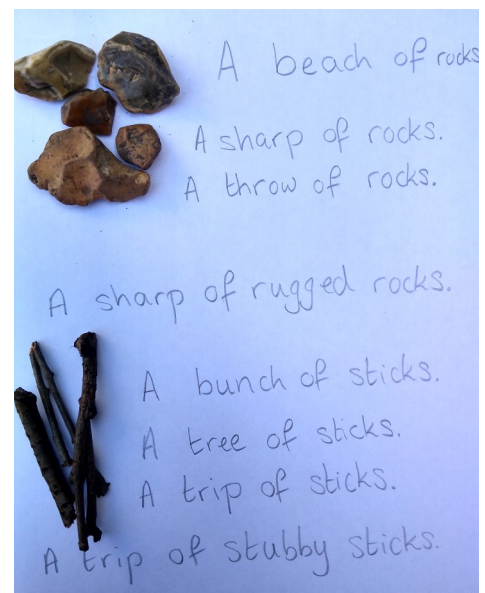 A beach of rocks
A sharp of rocks.
A throw of rocks.
A sharp of rugged rocks.
A bunch of sticks.
A tree of sticks.
A trip of sticks.
A trip of stubby sticks.